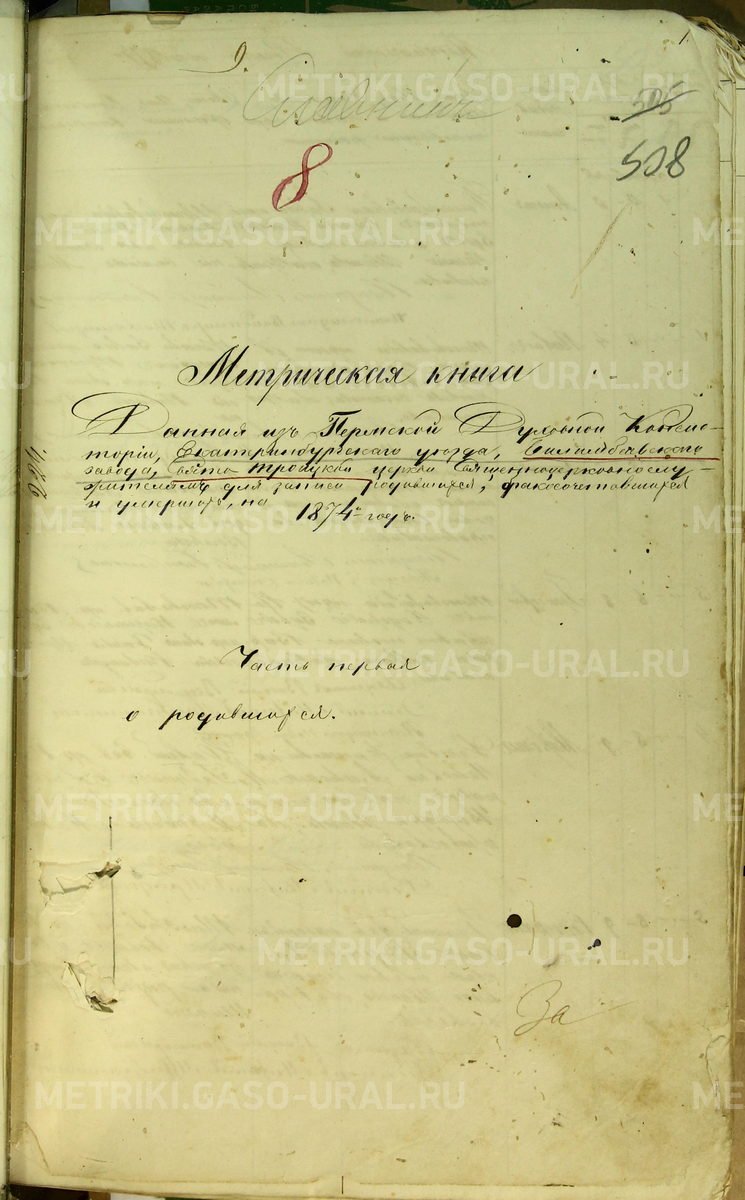 9.
1.
505
508
8
Метрическая книга
Данная изъ Пермской Духовной Консис-
торіи, Екатеринбургскаго уѣзда, Билимбаевскаго
завода, Свято Троицкой церкви Священноцерковнослу-
жителямъ для записи родившихся, бракосочетавшихся
и умершихъ, на
1874й годъ.
Часть первая
о родившихся.
За
METRIKI.GASO-URAL.RU